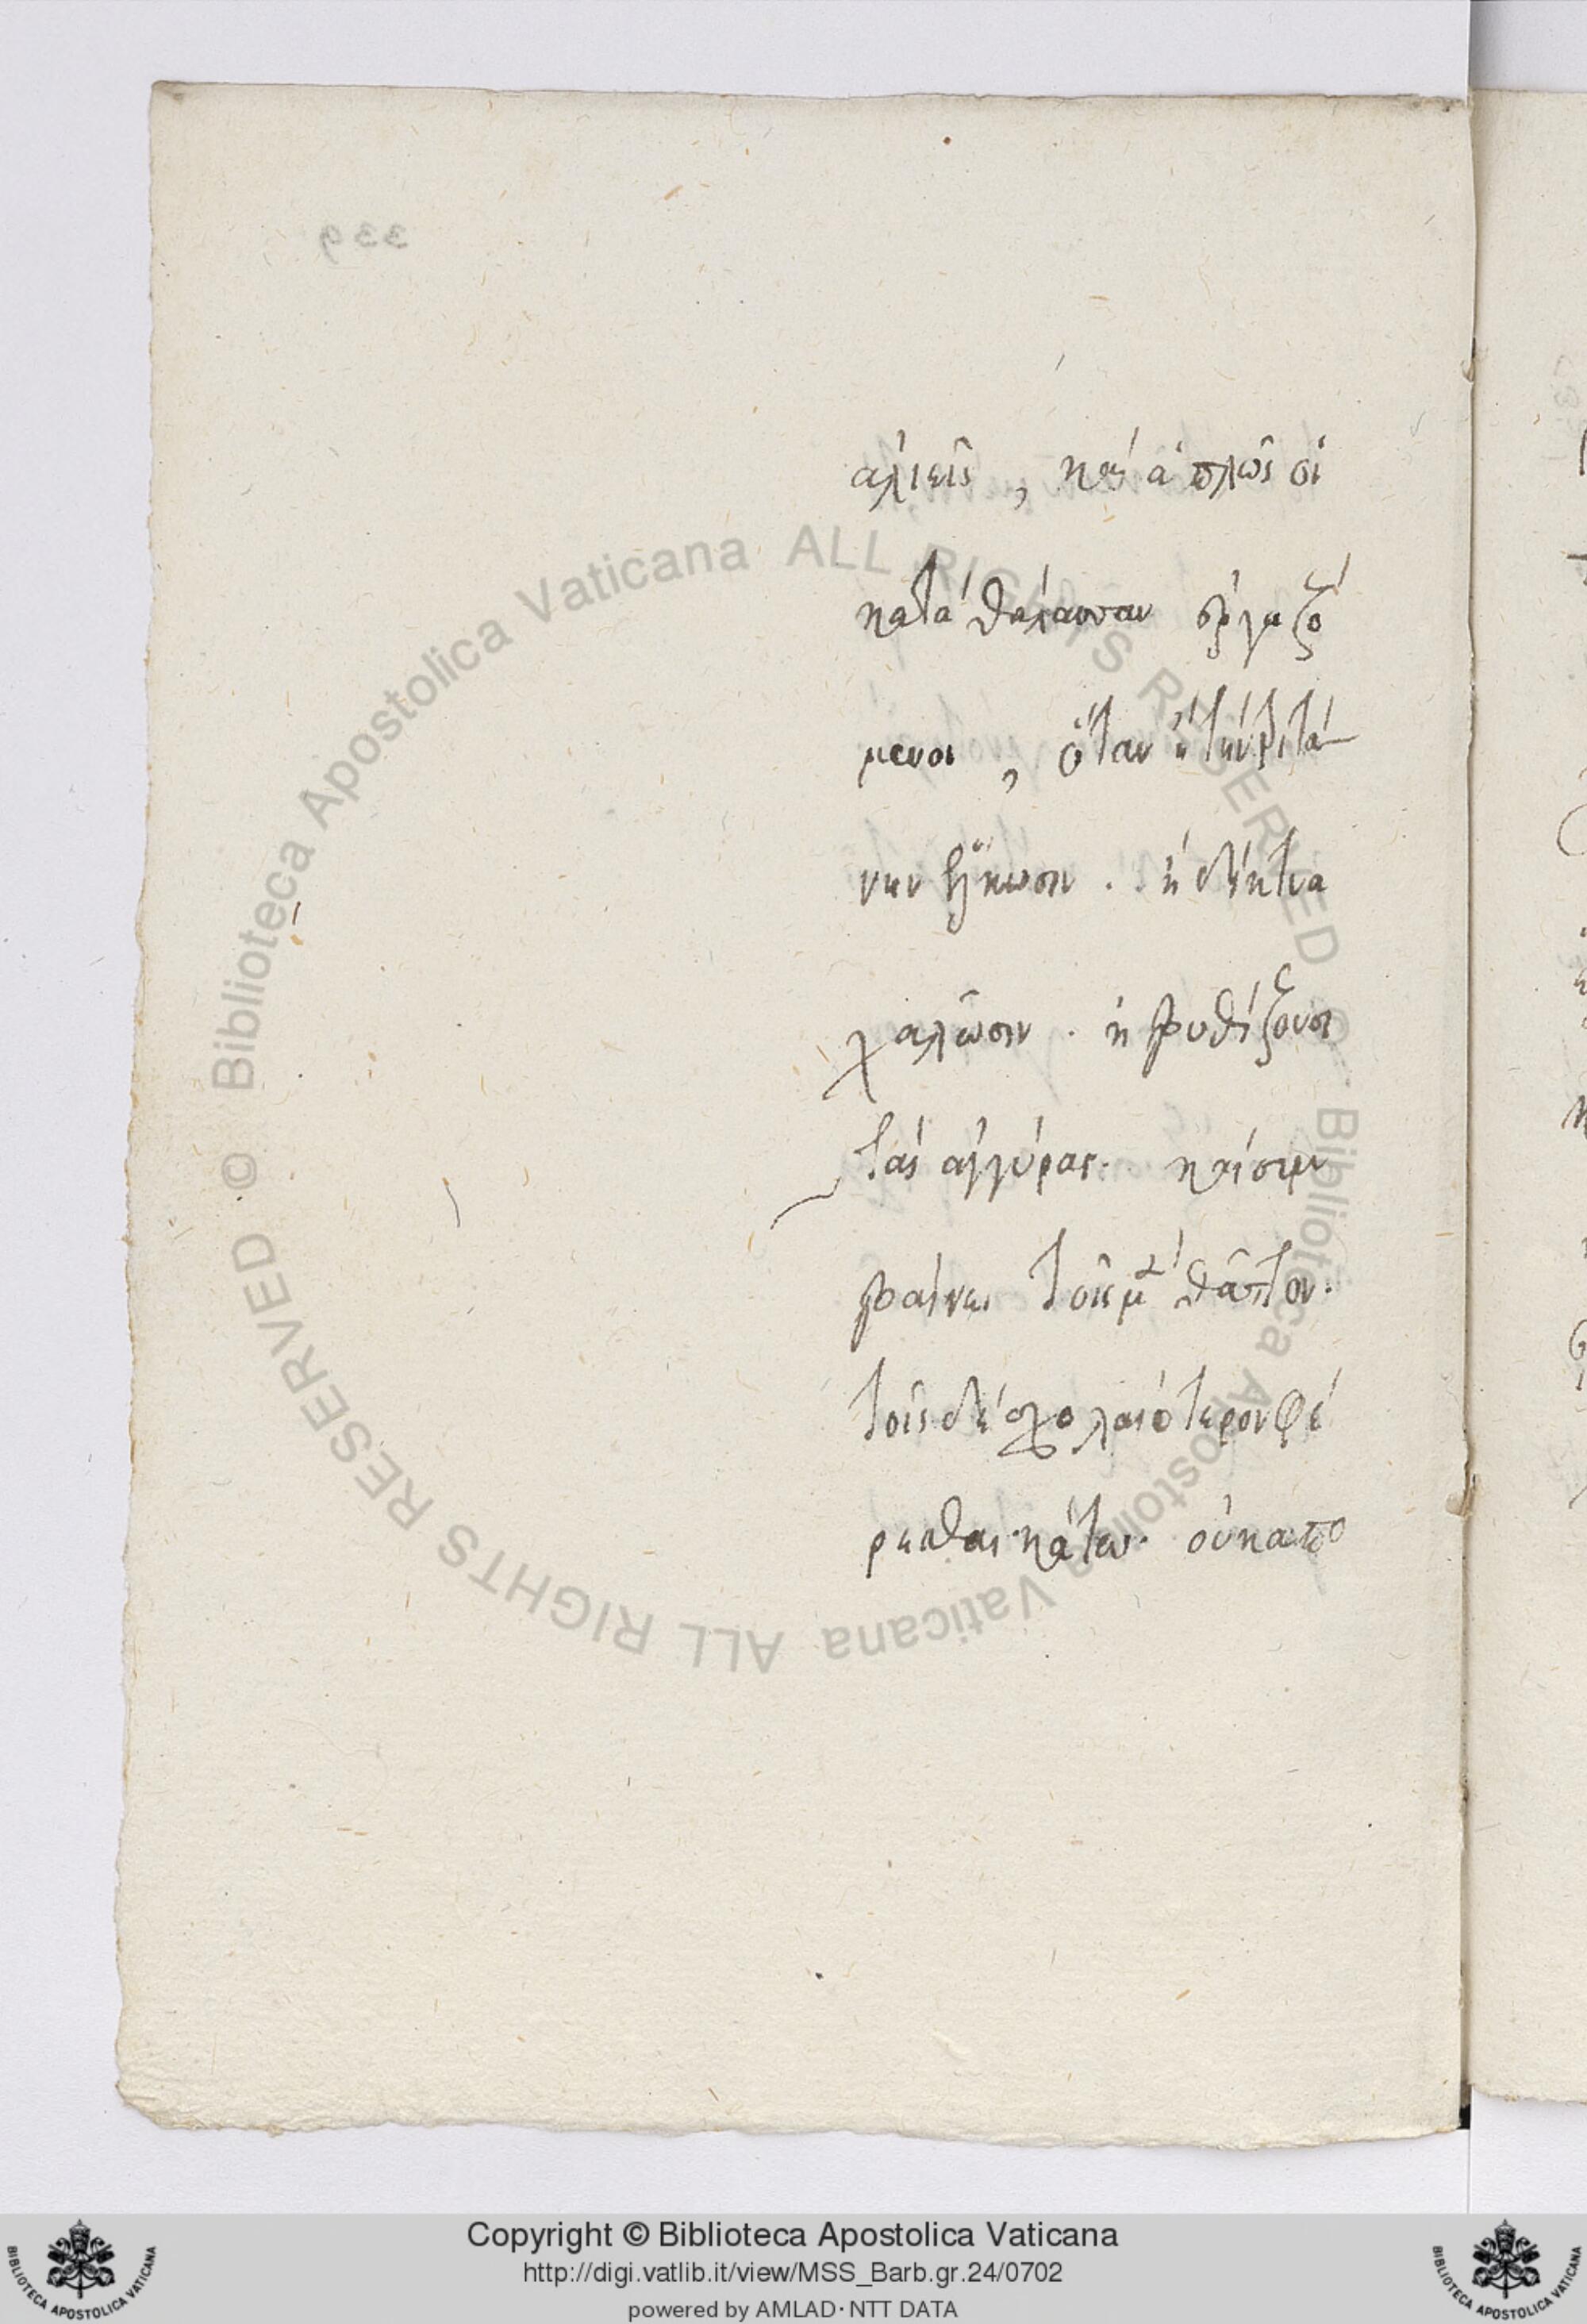 339
ἁλιεῖς, καὶ ἁπλῶς οἱ
κατὰ θάλασσαν ἐργαζό
μενοι, ὅταν ἢ τὴν βιτά
νην ἕλκωσιν. ἢ δίκτυα
χαλῶσιν. ἢ βυθίζουσι
τὰς ἀγγύρας. καὶ συμ
βαίνει τοῖς μὲν θᾶττον.
τοῖς δὲ σχολαιότερον φέ
ρεσθαι κάτω. οὐκ ἀπὸ
© Biblioteca Apostolica Vaticana ALL RIGHTS RESERVED © Biblioteca Apostolica Vaticana ALL RIGHTS RESERVED
Copyright © Biblioteca Apostolica Vaticana
http://digi.vatlib.it/view/MSS_Barb.gr.24/0702
powered by AMLAD · NTT DATA
BIBLIOTECA APOSTOLICA VATICANA
BIBLIOTECA APOSTOLICA VATICANA